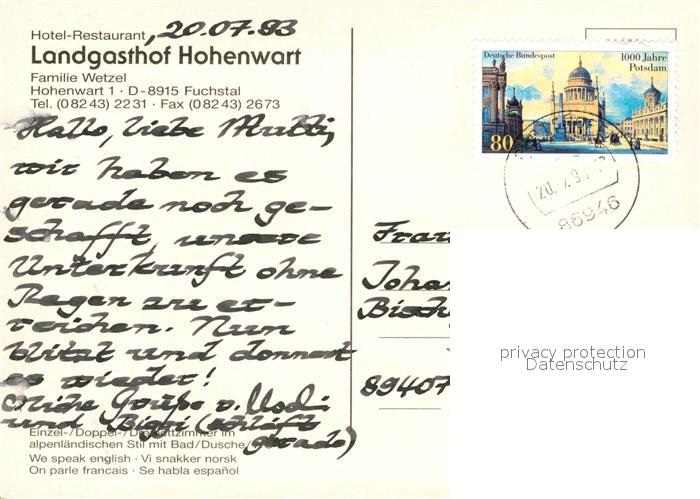 Hotel-Restaurant, 20.07.93
Landgasthof Hohenwart
Familie Wetzel
Hohenwart 1 · D-8915 Fuchstal
Tel. (08243) 2231 · Fax (08243) 2673
Hallo, liebe Mutti,
wir haben es
gerade noch ge-
schafft, unsere
Unterkunft ohne
Regen zu er-
reichen. Nun
blitzt und donnert
es wieder!
Liebe Grüße v.
und (schläft
gerade)
Einzel-/Doppel-/Dreibettzimmer im
alpenländischen Stil mit Bad/Dusche/
We speak english · Vi snakker norsk
On parle francais · Se habla español
Deutsche Bundespost
1000 Jahre
Potsdam
80
20. 7. 9
86946
Frau
Joha
Bisch
89407
privacy protection
Datenschutz